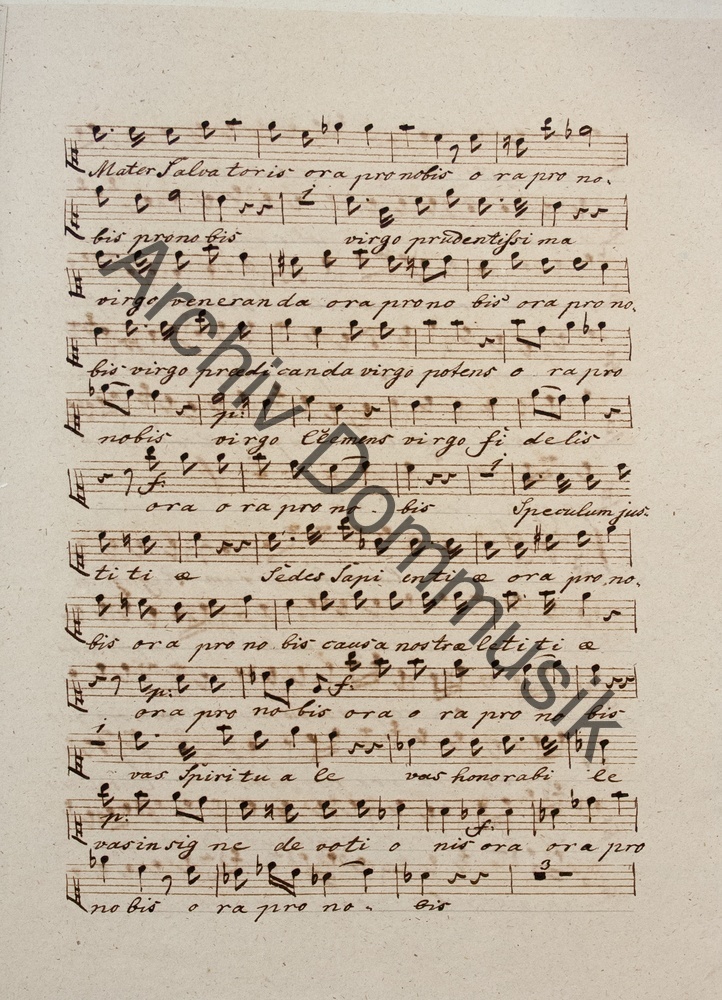 Mater Salvatoris ora pro nobis o ra pro no.
bis pro no bis virgo prudentissi ma
virgo veneranda ora pro no bis ora pro no.
bis virgo prædi can da virgo potens o ra pro
nobis virgo Clemens virgo fi delis
p:
ora o ra pro no - bis Speculum jus.
f.
ti ti æ Sedes Sapi enti æ ora pro no.
bis ora pro no bis causa nostræ letiti æ
p: f.
ora pro no bis ora o ra pro no bis
vas Spiritu a le vas honorabi le
p: f.
vas in sig ne de voti o nis ora ora pro
3
no bis o ra pro no - bis
Archiv Dommusik